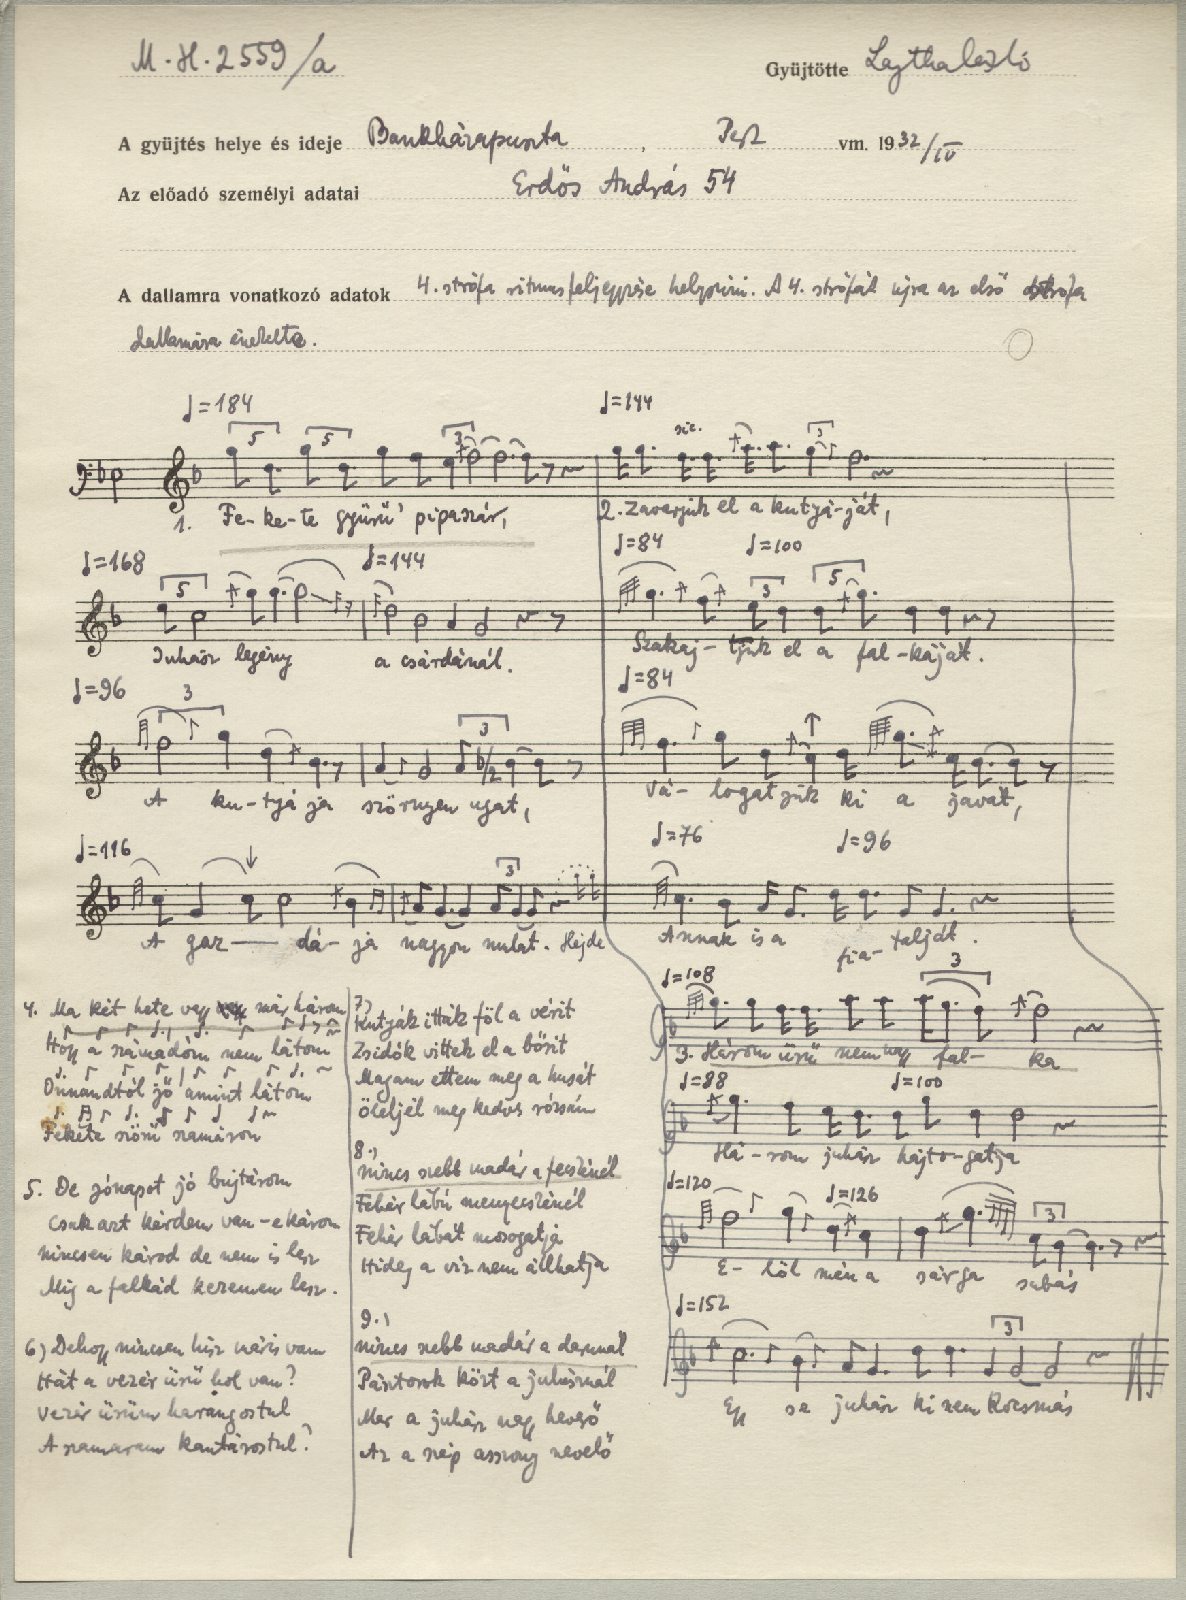 M.H. 2559/a
Gyüjtötte Lajtha László
A gyüjtés helye és ideje Bankházapuszta, Pest vm. 1932/IV
Az előadó személyi adatai Erdős András 54
A dallamra vonatkozó adatok 4. strófa ritmusfeljegyzése helyszíni. A 4. strófát újra az első strófa
dallamára énekelte.
♩=184
5 5 3
1. Fe-ke-te gyürű' pipaszár,
♩=168 ♩=144
5
Juhász legény a csárdánál.
♩=96
3 3
A ku-tyá ja szörnyen ugat,
♩=116
3
A gaz— dá- ja nagyon mulat. Hejde
♩=144
sic.
3
2. Zavarjuk el a kutyá-ját,
♩=84 ♩=100
3 5
Szakaj-tjuk el a fal-káját.
♩=84
Vá- logatjuk ki a javát,
♩=76 ♩=96
Annak is a fia- talját.
♩=108
3
3. Három ürü nem nagy fal- ka
♩=88 ♩=100
Há-rom juhász hajto-gatja
♩=120 ♩=126
3
E- löl mén a sárga subás
♩=152
3
Egy se juhász ki nem kocsmás
4. Ma két hete vagy már három
Hogy a számadóm nem látom
Önnandtól jő amint látom
Fekete szőrű szamáron
5. De jónapot jó bujtárom
Csak azt kérdem van-e károm
Nincsen károd de nem is lesz
Mig a falkád kezemen lesz.
6) Dehogy nincsen hisz máris vam
Hát a vezér ürü hol van?
Vezér ürüm harangostul
A szamaram kantárostul?
7) Kutyák itták föl a vérit
Zsidók vittek el a bőrit
Magam ettem meg a husát
Öleljél meg kedves rózsám
8.)
Nincs szebb madár a fecskénél
Fehér lábú menyecskénél
Fehér lábát mosogatja
Hideg a viz nem állhatja
9.)
Nincs szebb madár a darunál
Pásztorok közt a juhásznál
Mer a juhász nagy heverő
Az a szép asszony nevelő